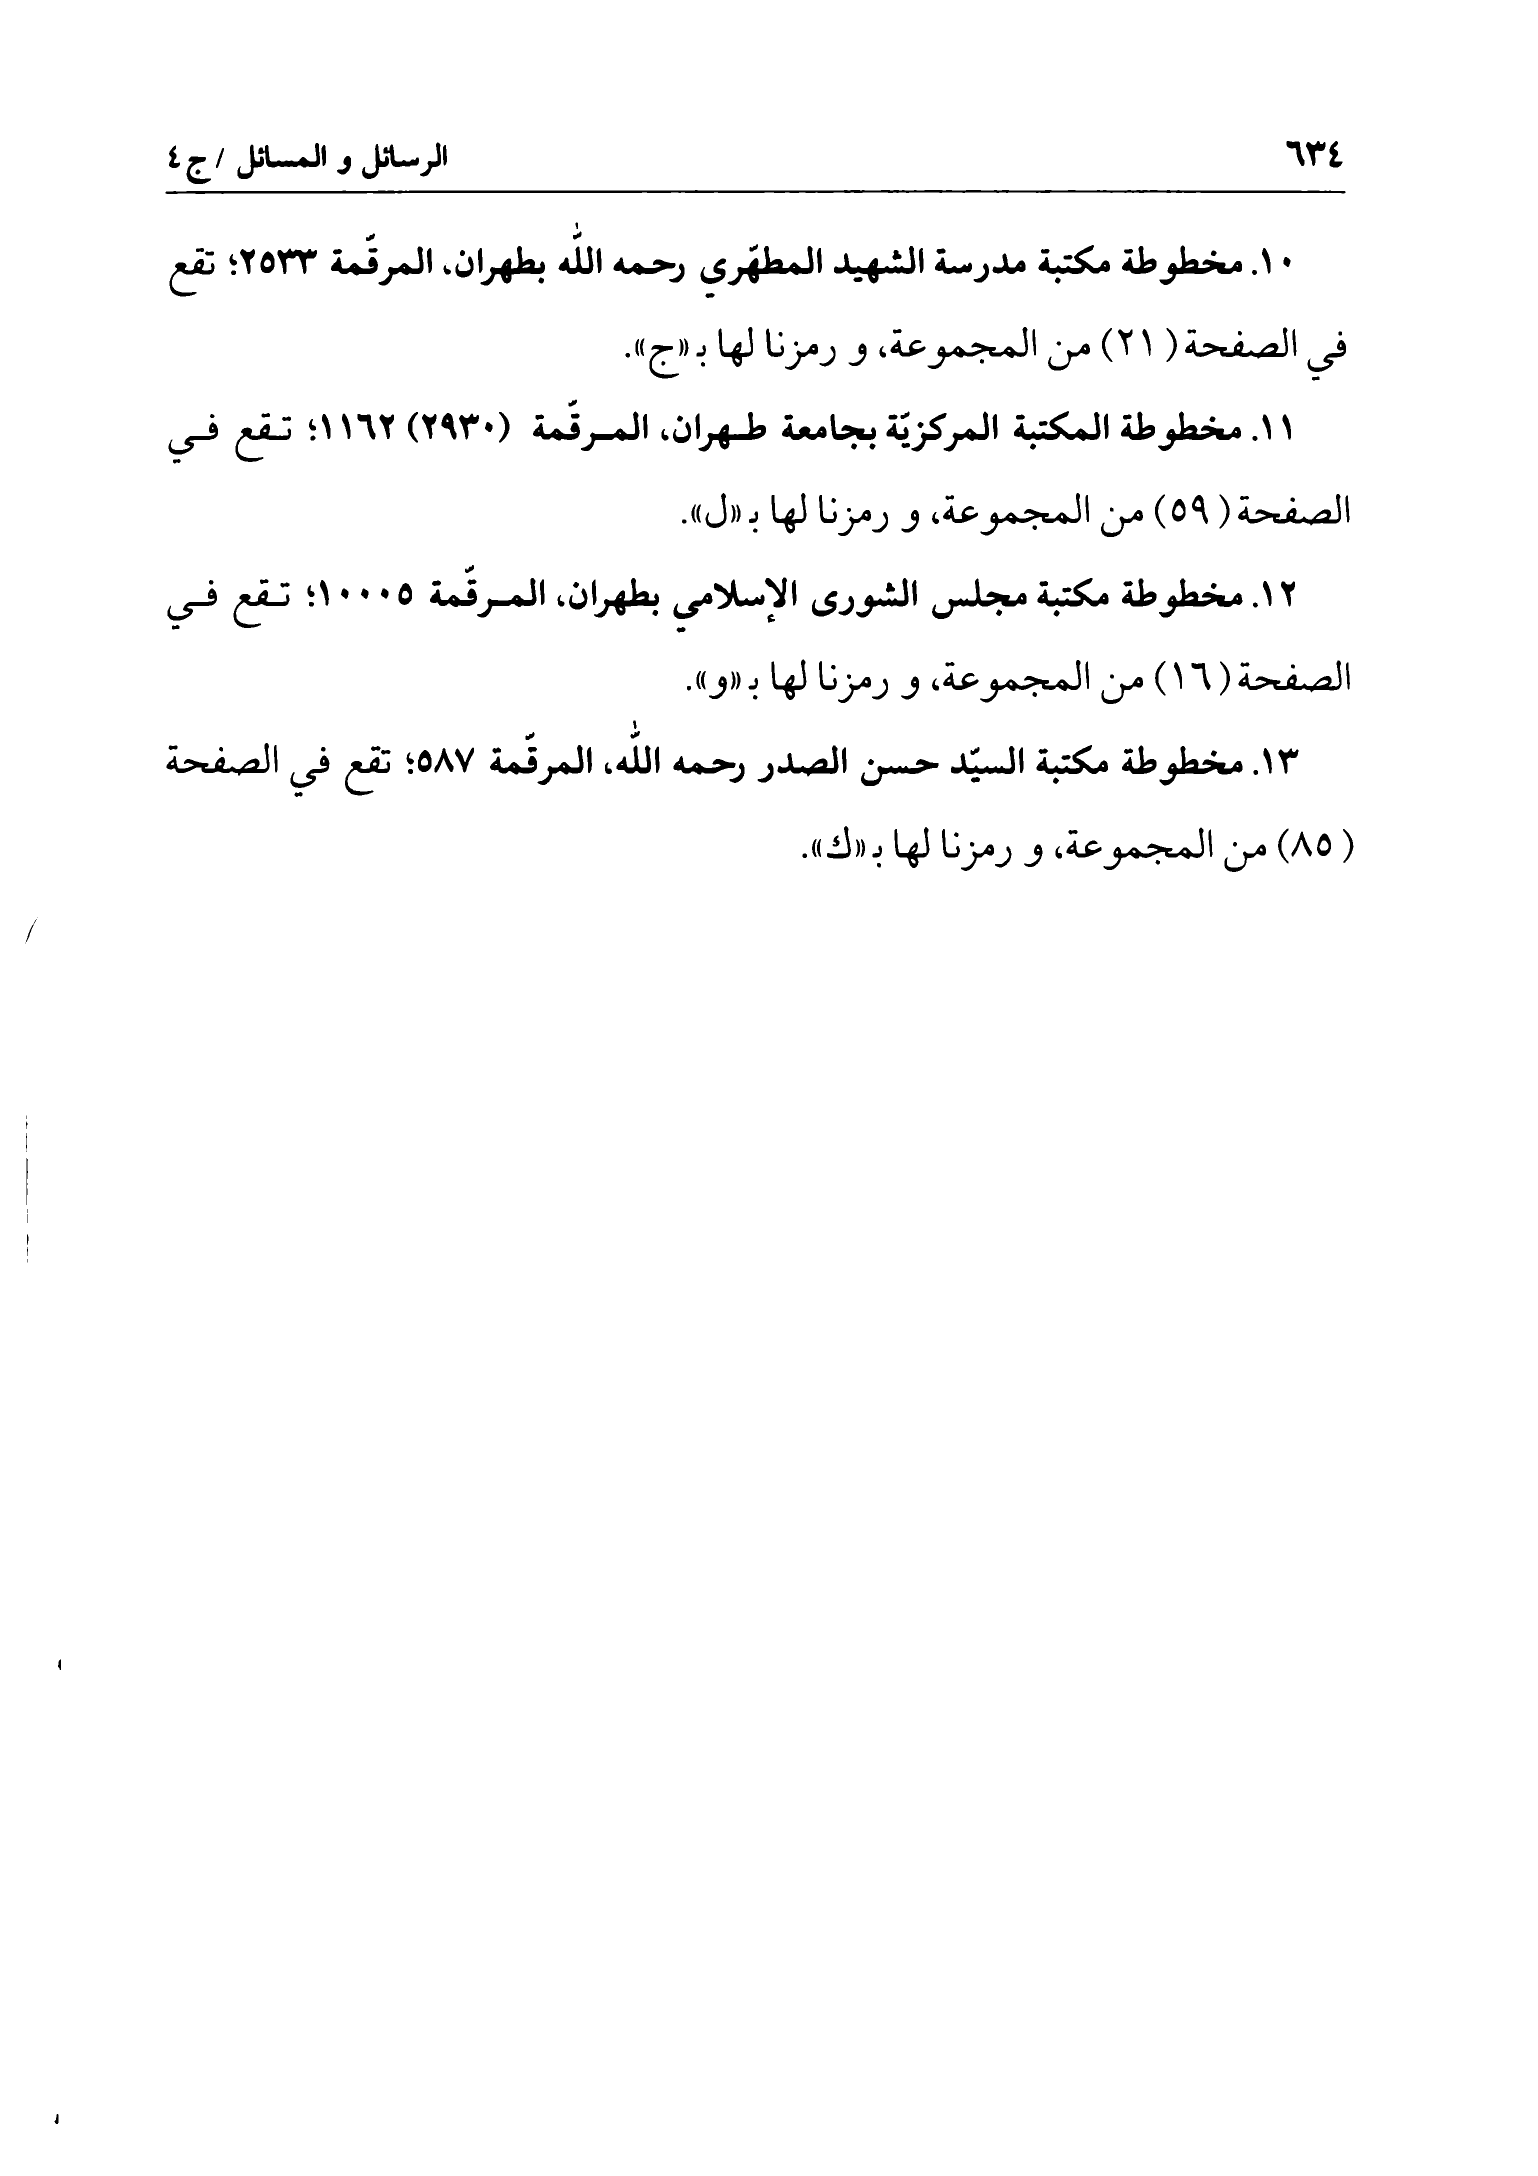 ٦٣٤ الرسائل و المسائل / ج٤
١٠. مخطوطة مكتبة مدرسة الشهيد المطهّري رحمه الله بطهران، المرقّمة ٢٥٣٣؛ تقع
في الصفحة (٢١) من المجموعة، و رمزنا لها بـ«ج».
١١. مخطوطة المكتبة المركزيّة بجامعة طـهران، المـرقّمة (٢٩٣٠) ١١٦٢؛ تـقع فـي
الصفحة (٥٩) من المجموعة، و رمزنا لها بـ«ل».
١٢. مخطوطة مكتبة مجلس الشورى الإسلامي بطهران، المـرقّمة ١٠٠٠٥؛ تـقع فـي
الصفحة (١٦) من المجموعة، و رمزنا لها بـ«و».
١٣. مخطوطة مكتبة السيّد حسن الصدر رحمه الله، المرقّمة ٥٨٧؛ تقع في الصفحة
(٨٥) من المجموعة، و رمزنا لها بـ«ك».